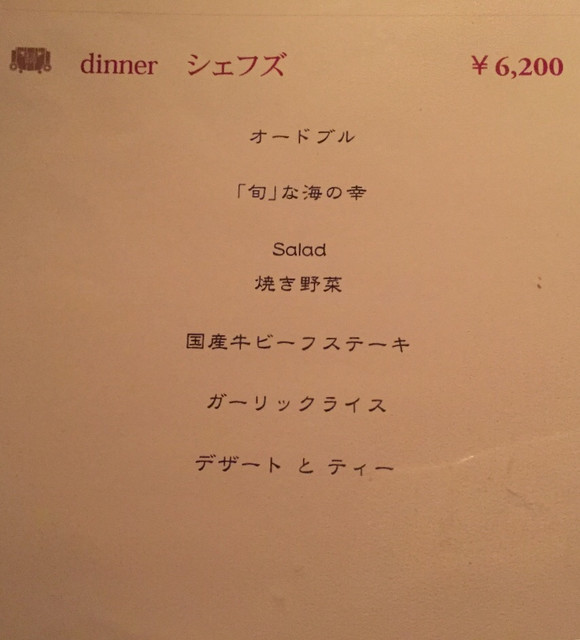 dinner シェフズ ￥6,200
オードブル
「旬」な海の幸
Salad
焼き野菜
国産牛ビーフステーキ
ガーリックライス
デザート と ティー